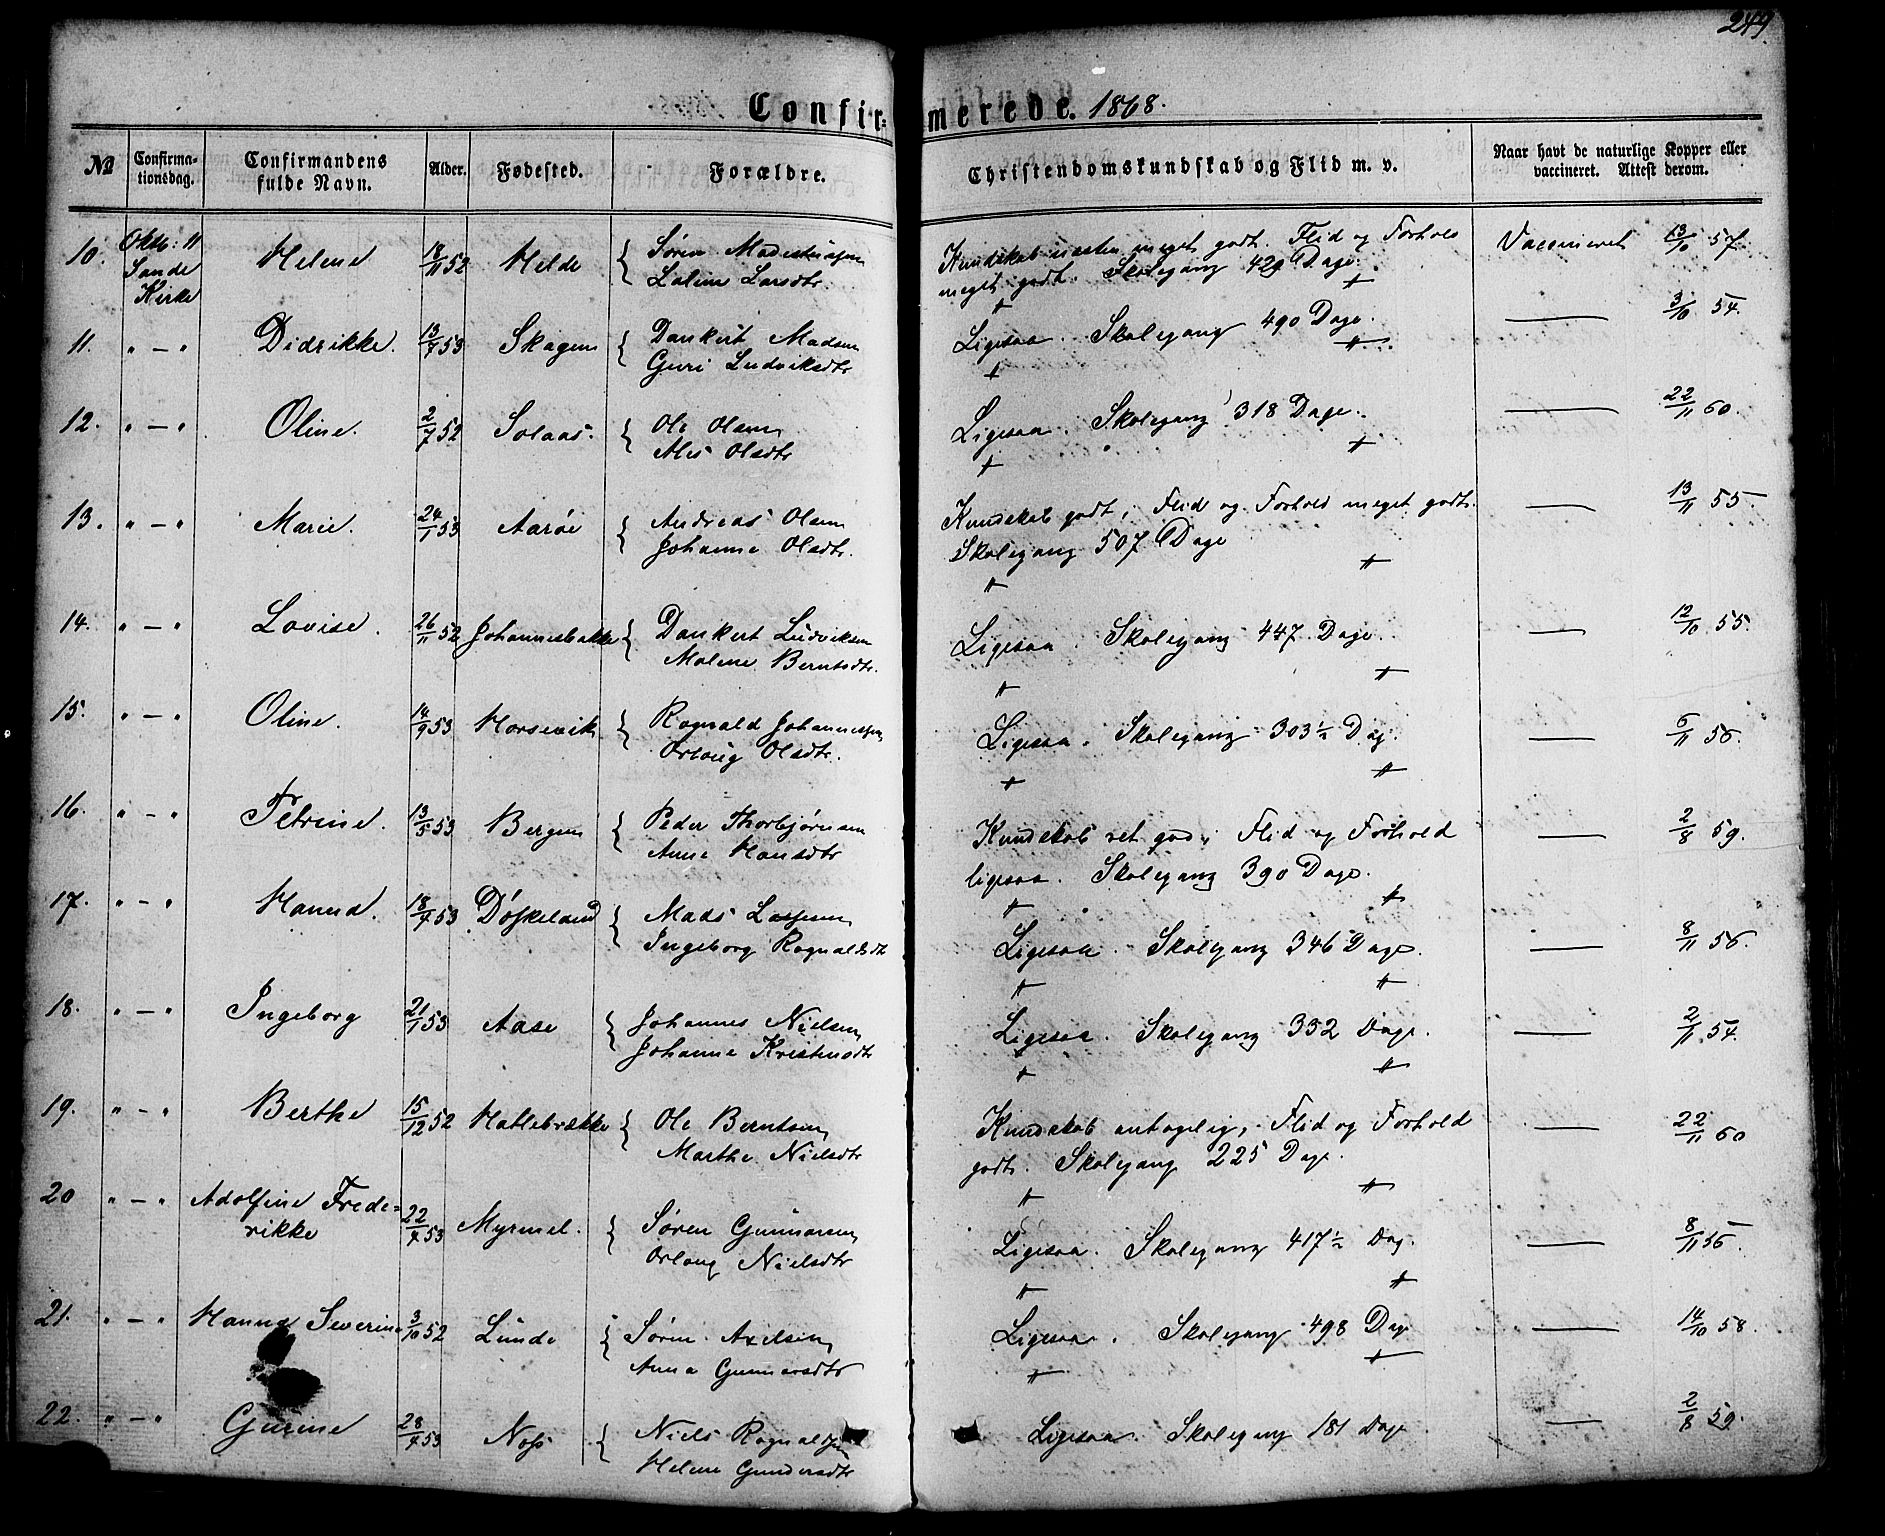 249.
Confirmerede. 1868.
No Confirmationsdag. Confirmandens fulde Navn. Alder. Fødested. Forældre. Christendomskundskab og Flid m. v. Naar havt de naturlige Kopper eller vaccineret. Attest derom.
10. Oktb: 11 Helene 18/11 52 Helde { Søren Madsen Kundskab næsten meget godt. Flid og Forhold Vaccineret 13/10 57.
Sande Kirke Laline Larsdtr. meget godt. Skolegang 429 Dage.
11. " - " Didrikke. 13/7 53 Skagen { Dankert Madsen Ligesaa. Skolegang 490 Dage. — 3/10 54.
Guri Ludviksdtr
12. " - " Oline. 2/7 52 Solaas. { Ole Olsen Ligesaa. Skolegang 318 Dage. — 22/11 60.
Ales Olsdtr
13. " - " Marie. 24/1 53 Aarøe { Andreas Olsen Kundskab godt, Flid og Forhold meget godt. — 13/11 55
Johanne Olsdtr. Skolegang 507 Dage
14. " - " Lovise. 26/11 52 Johannesbakke { Dankert Ludviksen Ligesaa. Skolegang 447 Dage. — 12/10 55.
Malene Berntsdtr.
15. " - " Oline. 14/9 53 Horsevik { Rognald Johannessen Ligesaa. Skolegang 303½ Dag. — 6/11 56.
Orloug Olsdtr.
16. " - " Petrine. 13/5 53 Bergen { Peder Thorbjørnsen Kundskab ret god, Flid og Forhold — 2/8 59.
Anne Hansdtr ligesaa. Skolegang 390 Dage.
17. " - " Hanna. 18/4 53 Døskeland { Mads Lassesen Ligesaa. Skolegang 346 Dage. — 8/11 56.
Ingeborg Rognaldsdtr
18. " - " Ingeborg 21/1 53 Aase { Johannes Nielsen Ligesaa. Skolegang 352 Dage. — 2/11 54.
Johanne Kristensdtr
19. " - " Berthe 15/12 52 Hatlebrække { Ole Berntsen Kundskab antagelig, Flid og Forhold — 22/11 60
Marthe Nielsdtr godt. Skolegang 225 Dage.
20 " - " Adolfine Frede= 22/4 53 Myrmel. { Søren Gunnarsen Ligesaa. Skolegang 417½ Dag. — 8/11 55.
rikke Orloug Nielsdtr
21. " - " Hanna Severine 3/10 52 Lunde { Søren Axelsen Ligesaa. Skolegang 498 Dage — 14/10 58.
Anna Gunnarsdtr
22. " - " Gurine 28/4 53 Noss { Niels Rognaldsen Ligesaa. Skolegang 181 Dage — 2/8 59.
Helene Gundersdtr